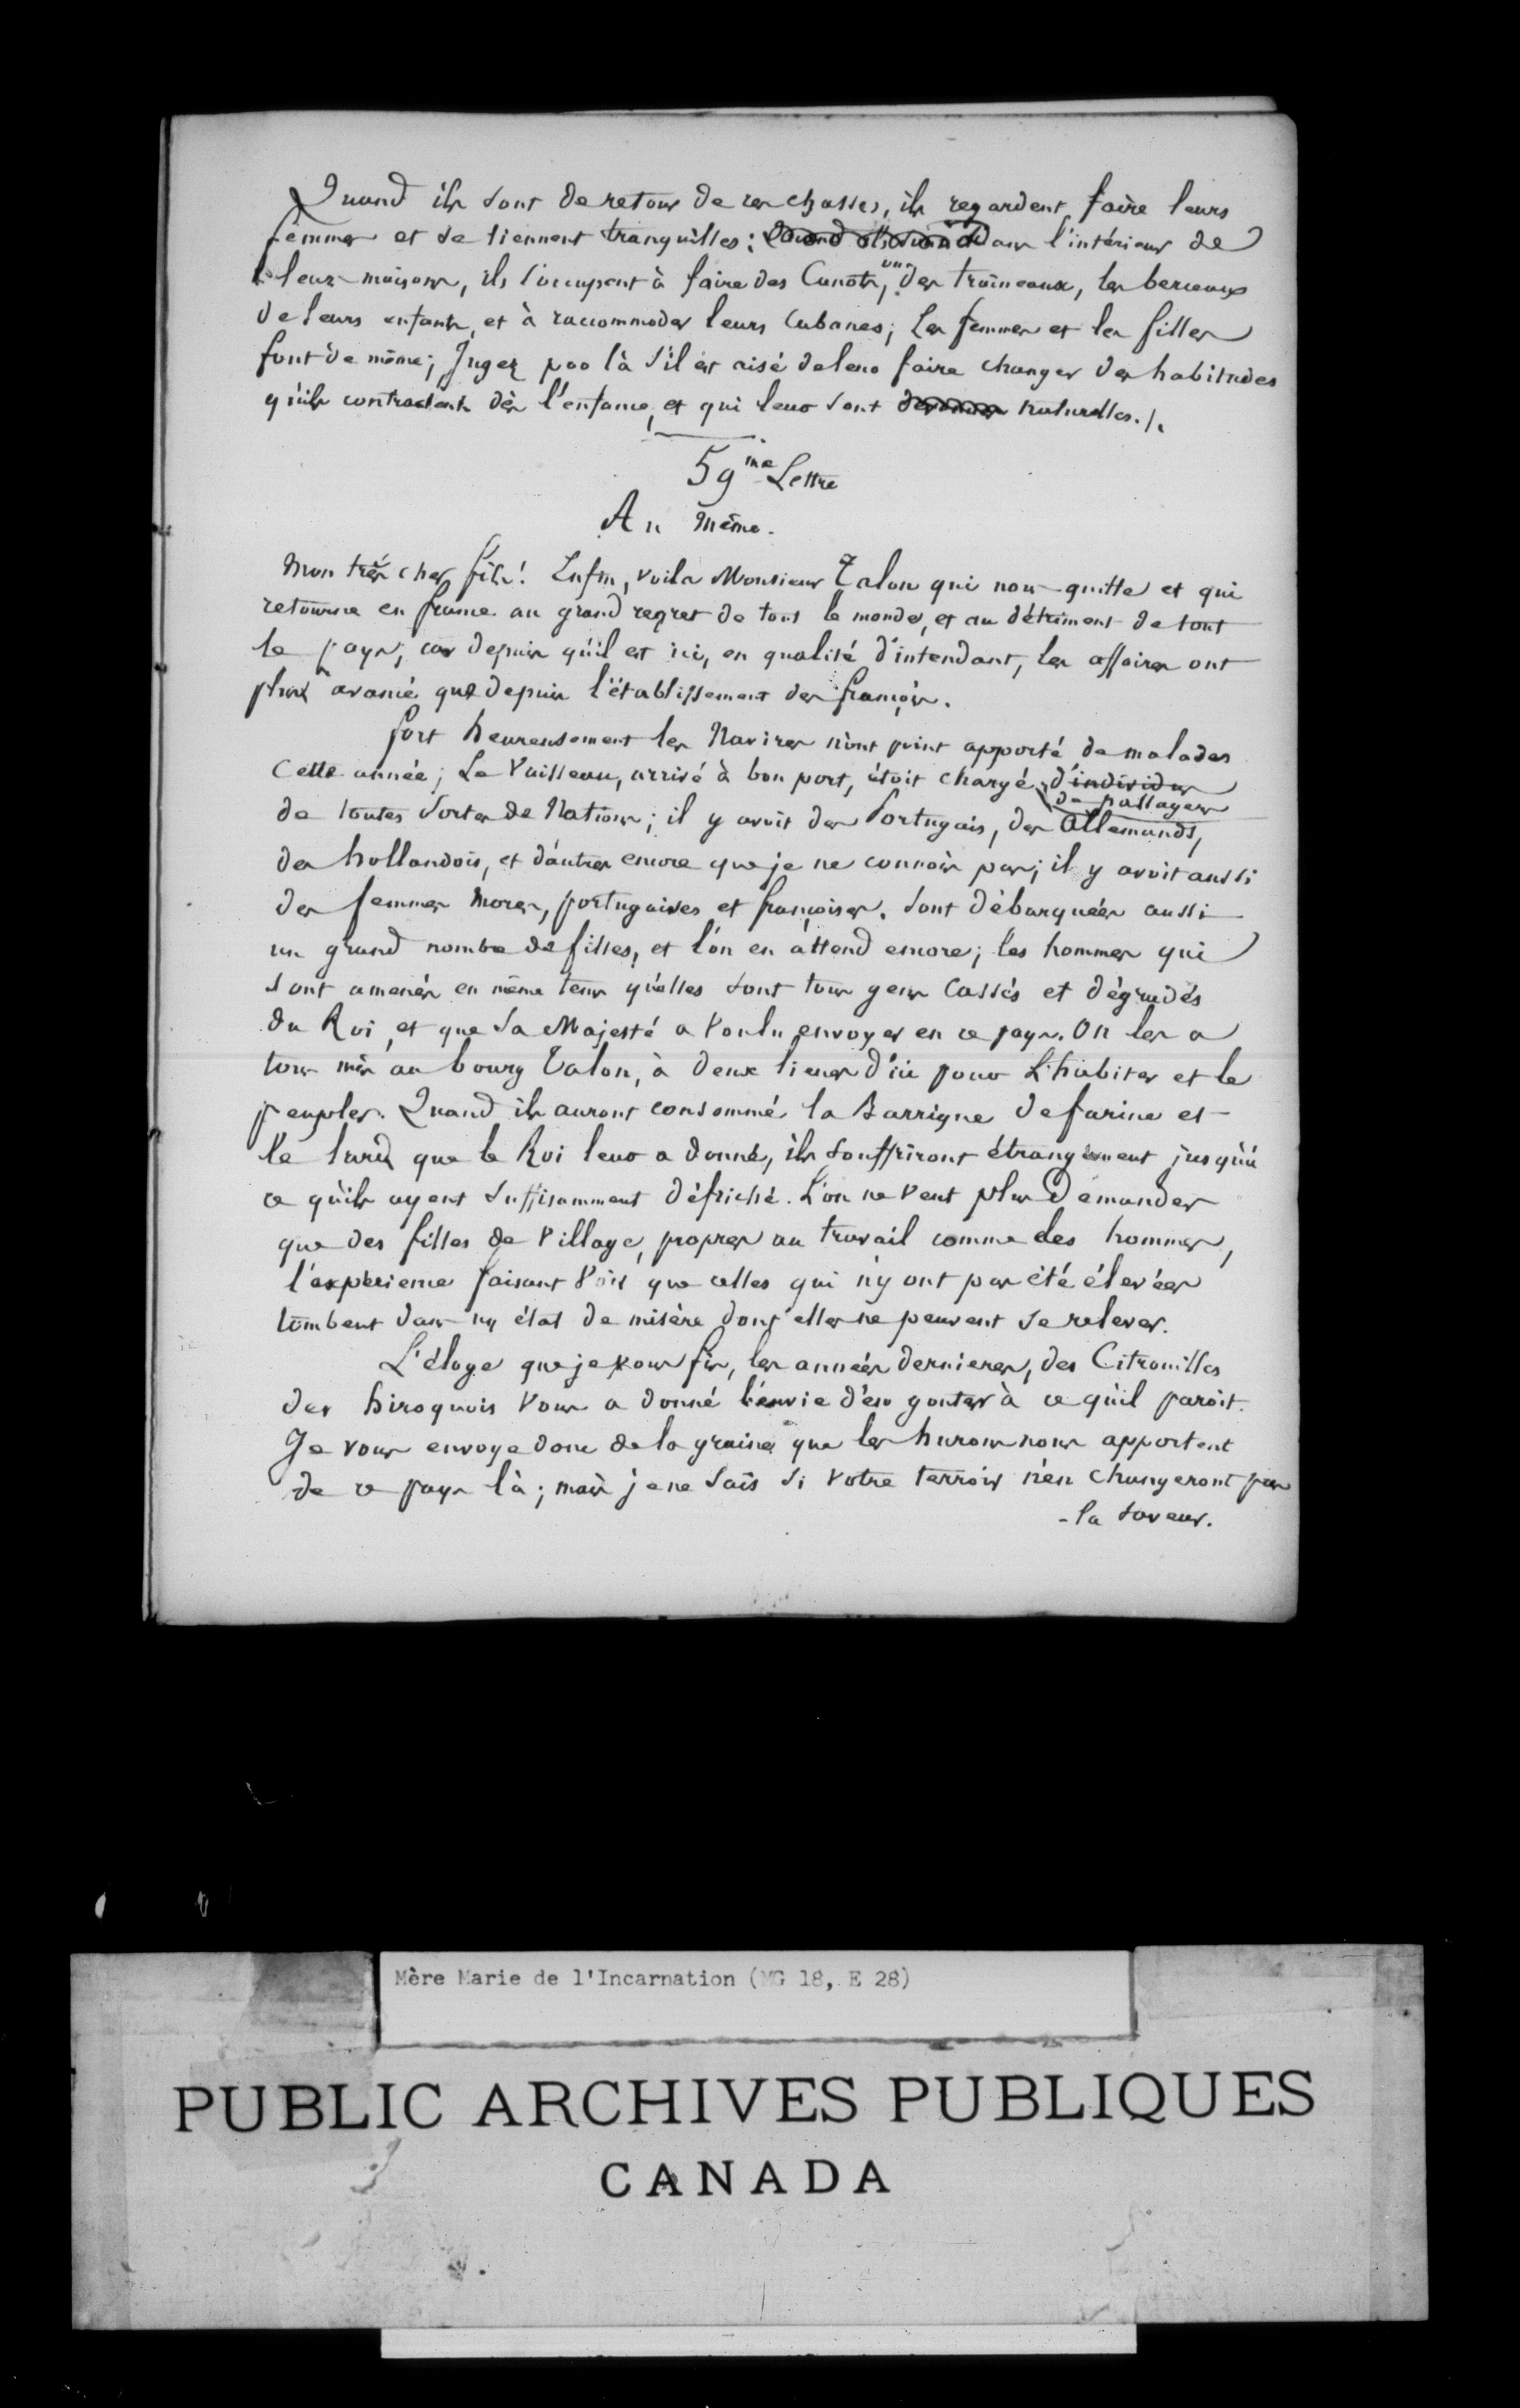 Quand ils sont de retour de ces chasses, ils regardent faire leurs
femmes et se tiennent tranquilles; dans l'intérieur de
leurs maisons, ils s'occupent à faire des Canots, ou des traineaux, les berceaux
de leurs enfants, et à raccommoder leurs Cabanes; les femmes et les filles
font de même; Jugez par là s'il est aisé de leur faire changer des habitudes
qu'ils contractent dès l'enfance, et qui leur sont naturelles./.
59me Lettre
Au même.
Mon très cher fils! Enfin, voila Monsieur Talon qui nous quitte et qui
retourne en france au grand regret de tout le monde, et au détriment de tout
le pays, car depuis qu'il est ici, en qualité d'intendant, les affaires ont
plus avancé que depuis l'établissement des françois.
fort heureusement les Navires n'ont point apporté de malades
Cette année; Le Vaisseau, arrivé à bon port, étoit chargé d'individus
de passagers
de toutes sortes de Nations; il y avoit des Portugais, des Allemands,
des hollandois, et d'autres encore que je ne connois pas; il y avoit aussi
des femmes mores, portugaises et françoises. Sont débarquées aussi
un grand nombre de filles, et l'on en attend encore; les hommes qui
sont amenés en même tems qu'elles sont tous gens Cassés et dégradés
du Roi, et que Sa Majesté a voulu envoyer en ce pays. On les a
tous mis au bourg Talon, à deux lieues d'ici pour L'habiter et le
peupler. Quand ils auront consommé la Barrique de farine et
le lard que le Roi leur a donné, ils souffriront étrangement jusqu'à
ce qu'ils ayent suffisamment défriché. L'on ne veut plus Demander
que des filles de Village, propres au travail comme des hommes,
l'expérience faisant voir que celles qui n'y ont pas été élevées
tombent dans un état de misère dont elles ne peuvent se relever.
L'éloge que je vous fis, les années dernieres, des Citrouilles
des hiroquois vous a donné l'envie d'en gouter à ce qu'il paroit.
Je vous envoye donc de la graine que les hurons nous apportent
de ce pays là; mais je ne sais si votre terroir n'en changeront pas
-la saveur.
Mère Marie de l'Incarnation (MG 18, E 28)
PUBLIC ARCHIVES PUBLIQUES
CANADA